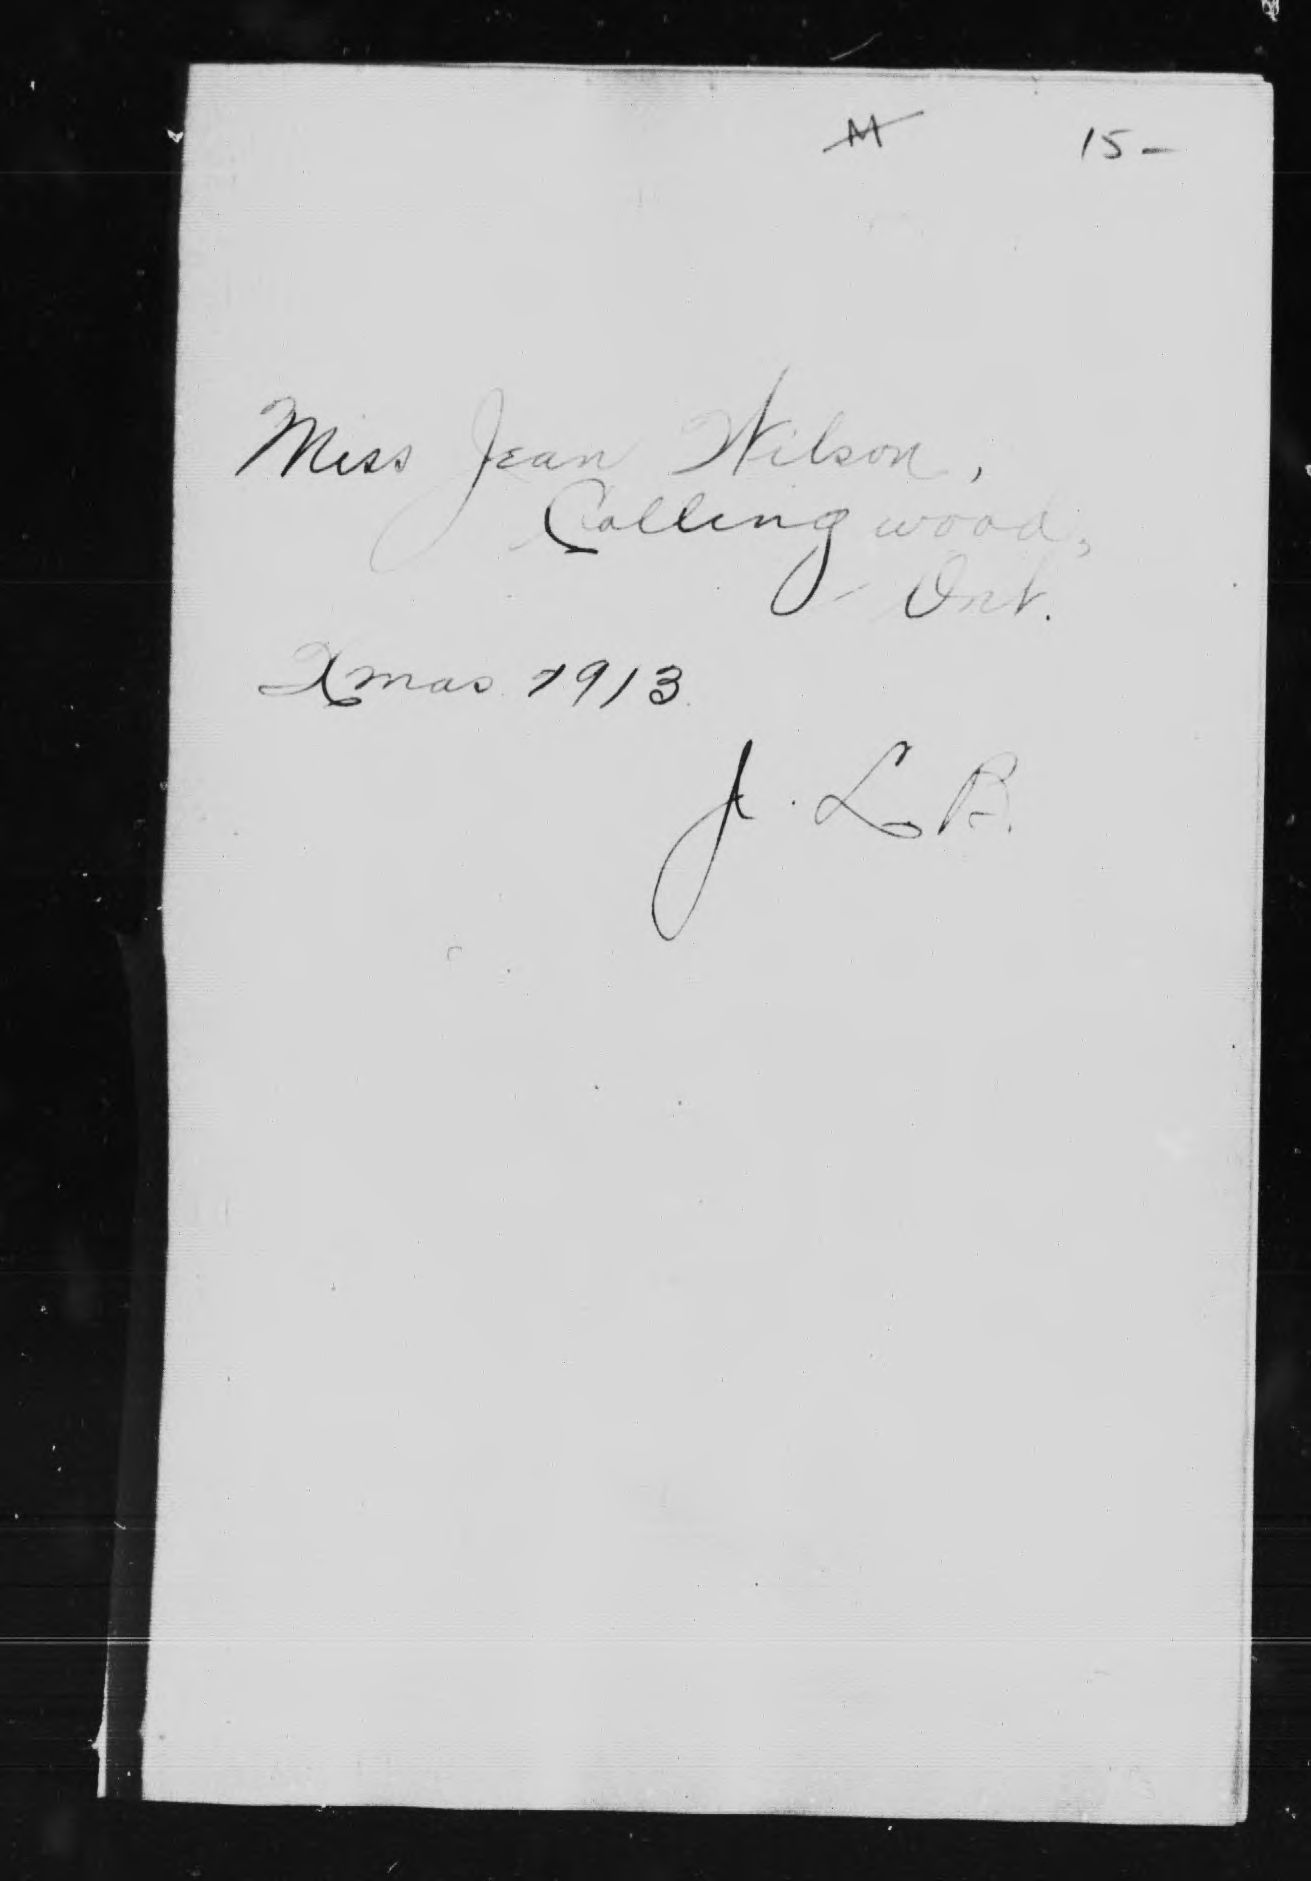 M 15-
Miss Jean Wilson,
Collingwood,
Ont.
Xmas 1913.
J. L. B.